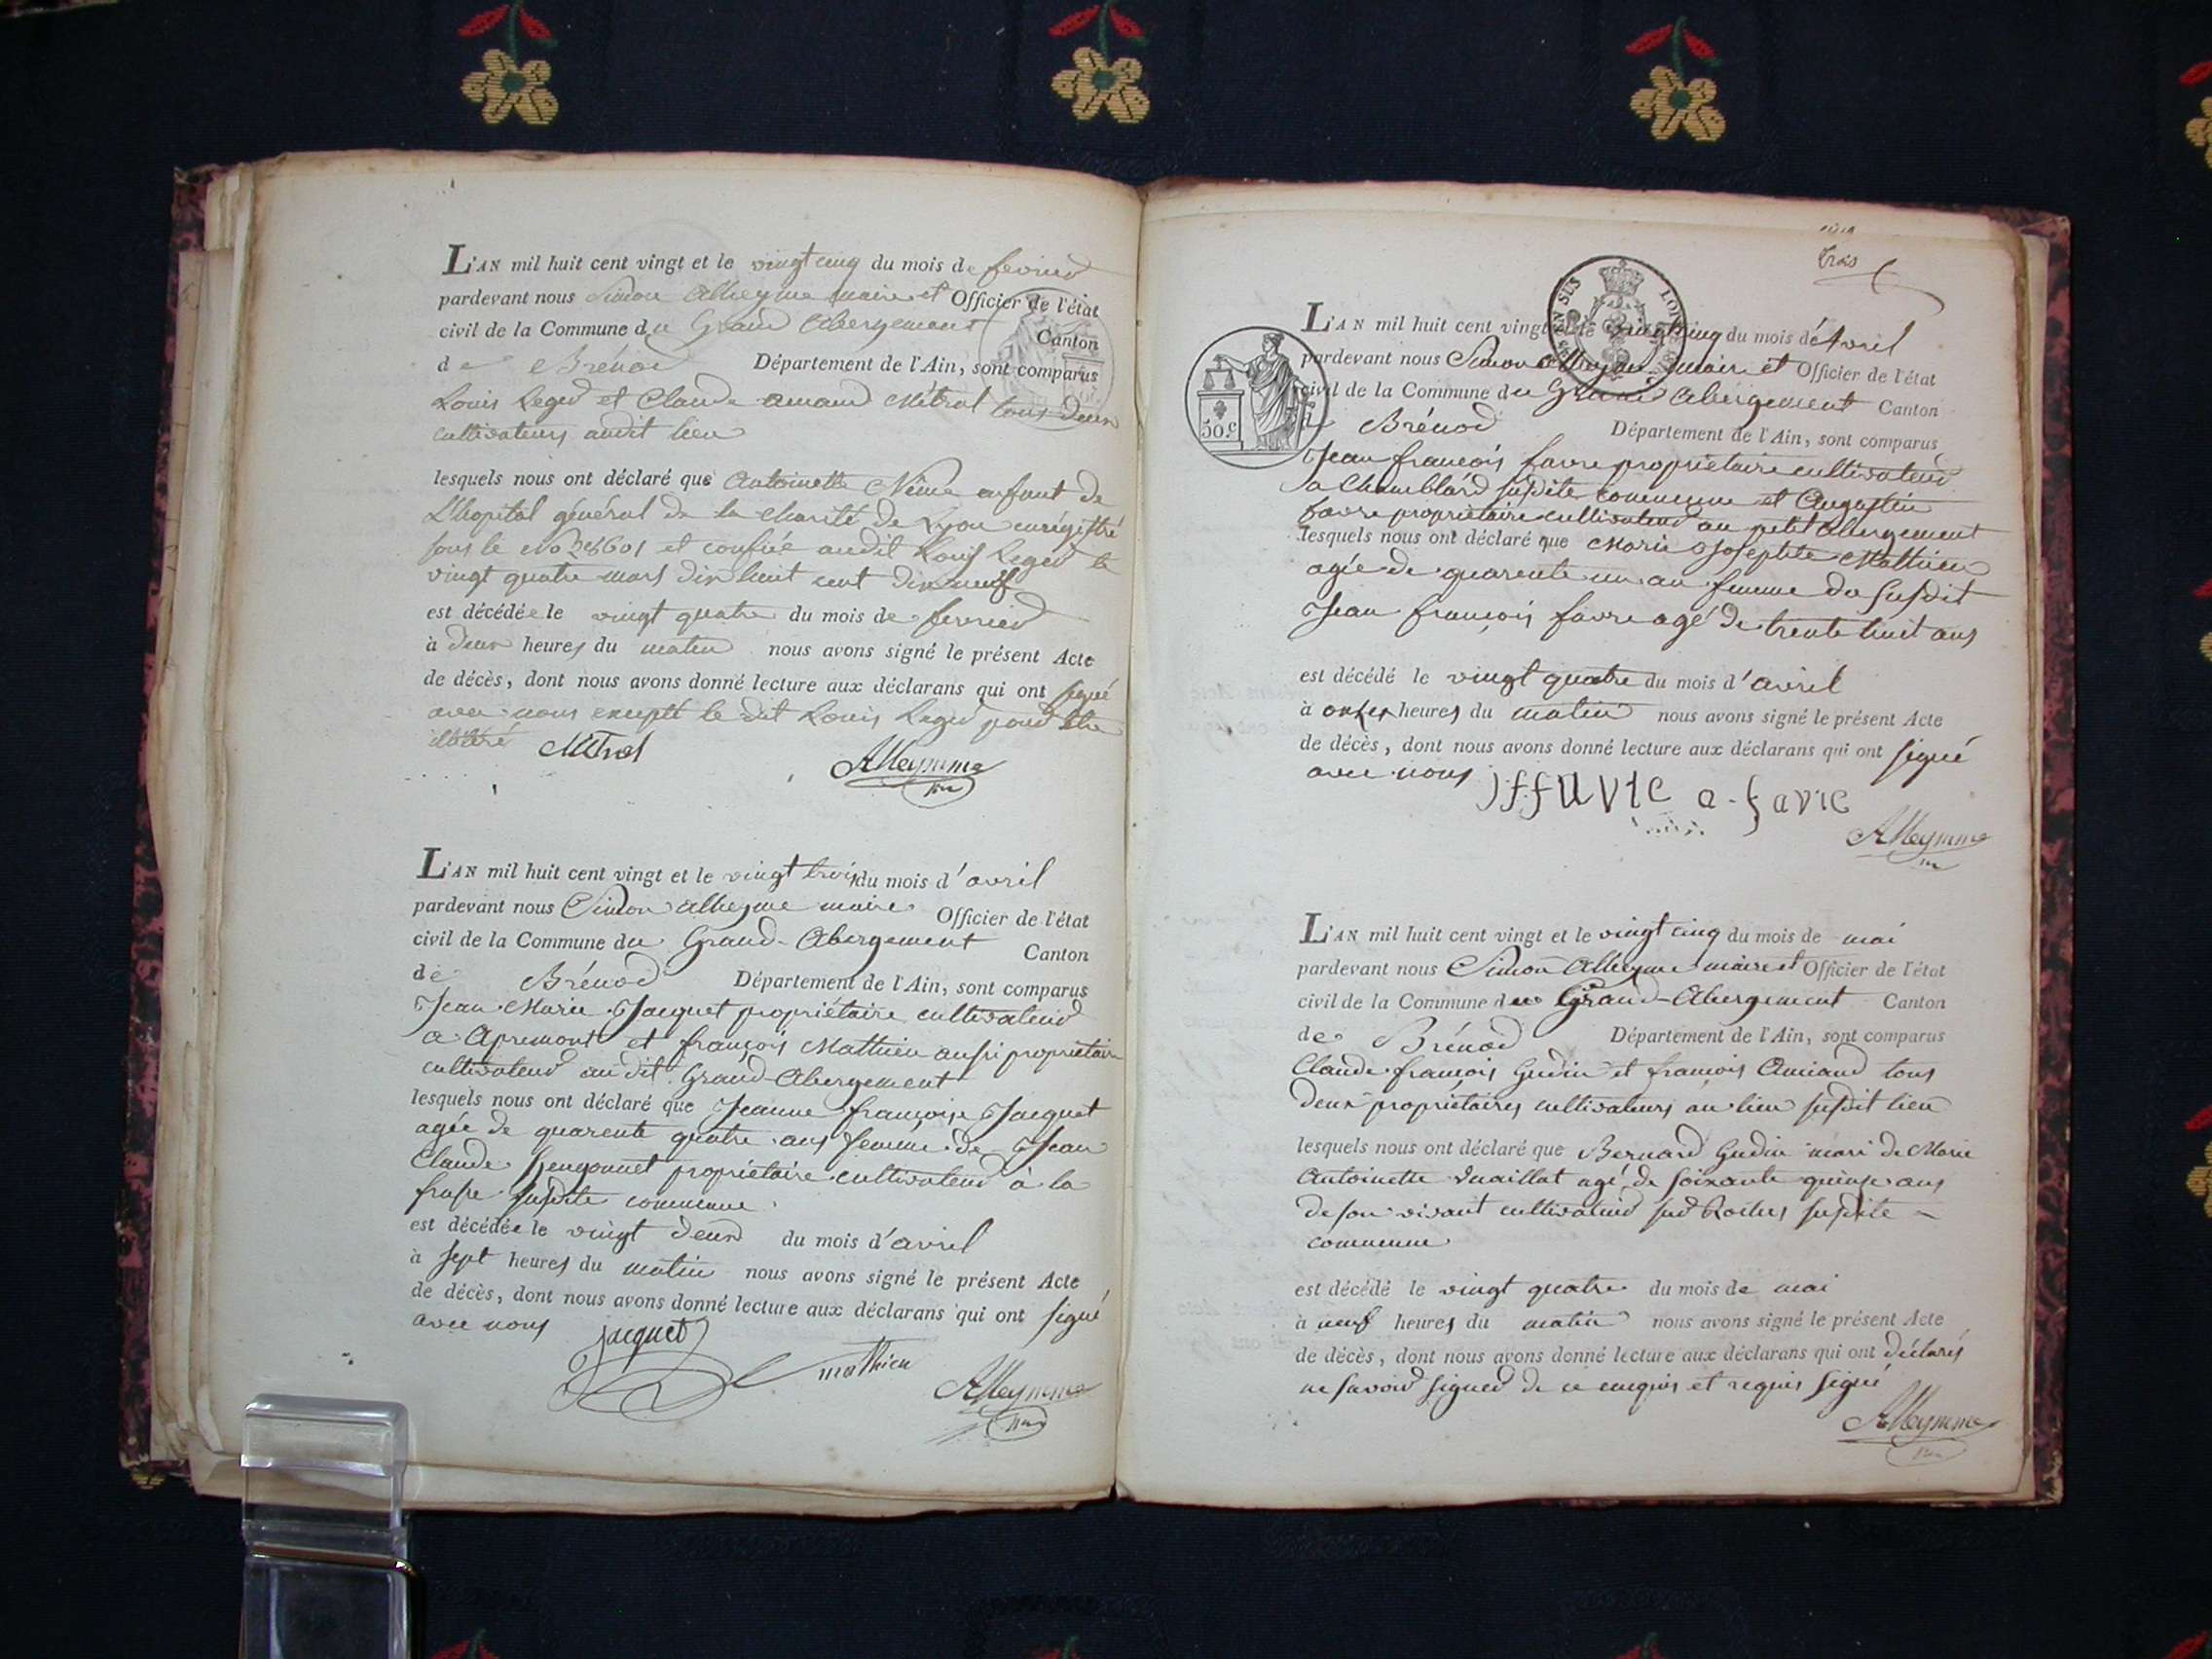 L'AN mil huit cent vingt et le vingt cinq du mois de fevrier
pardevant nous Simon Alleyme maire et Officier de l'état
civil de la Commune du Grand Abergement Canton
de Brénod Département de l'Ain, sont comparus
Louis Leger et Claude amand Métral tous deux
cultivateurs audit lieu
lesquels nous ont déclaré que Antoinette enfant de
L'hopital général de la charité de Lyon enrégistré
sous le No et confiée audit Louis Leger le
vingt quatre mars dix huit cent dix neuf
est décédée le vingt quatre du mois de fevrier
à deux heures du matin nous avons signé le présent Acte
de décès, dont nous avons donné lecture aux déclarans qui ont signé
avec nous excepté le dit Louis Leger pour être
illitéré Metral
Alleymme
L'AN mil huit cent vingt et le vingt trois du mois d'avril
pardevant nous Simon alleyme maire Officier de l'état
civil de la Commune du Grand-Abergement Canton
de Brénod Département de l'Ain, sont comparus
Jean Marie Jacquet propriétaire cultivateur
a Apremont et françois Mathieu aussi propriétaire
cultivateur audit Grand-Abergement
lesquels nous ont déclaré que Jeanne françoise Jacquet
agée de quarente quatre ans femme de Jean
Claude propriétaire cultivateur à la
frasse susdite commune
est décédée le vingt deux du mois d'avril
à sept heures du matin nous avons signé le présent Acte
de décès, dont nous avons donné lecture aux déclarans qui ont signé
avec nous jacquet
mathieu
Alleymme
trois
EN SUS
50.c
L'AN mil huit cent vingt et le vingt cinq du mois d'Avril
pardevant nous Simon alleyme maire et Officier de l'état
civil de la Commune du Grand Abergement Canton
de Brénod Département de l'Ain, sont comparus
Jean françois favre propriétaire cultivateur
a Chamblard susdite commune et Augustin
favre propriétaire cultivateur au petit Abergement
lesquels nous ont déclaré que Marie Josephte Mathieu
agée de quarente un an femme du susdit
Jean françois favre agé de trente huit ans
est décédé le vingt quatre du mois d'avril
à onze heures du matin nous avons signé le présent Acte
de décès, dont nous avons donné lecture aux déclarans qui ont signé
avec nous jffavre a-favre
Alleymme
L'AN mil huit cent vingt et le vingt cinq du mois de mai
pardevant nous Simon Alleyme maire et Officier de l'état
civil de la Commune du Grand-Abergement Canton
de Brénod Département de l'Ain, sont comparus
Claude françois Gudin et françois Amiand tous
deux propriétaires cultivateurs au lieu susdit lieu
lesquels nous ont déclaré que Bernard Gudin mari de Marie
Antoinette Vuaillat agé de soixante quinze ans
de son vivant cultivateur sur Roches susdite
commune
est décédé le vingt quatre du mois de mai
à neuf heures du matin nous avons signé le présent Acte
de décès, dont nous avons donné lecture aux déclarans qui ont déclarés
ne savoir signer de ce enquis et requis signé
Alleymme